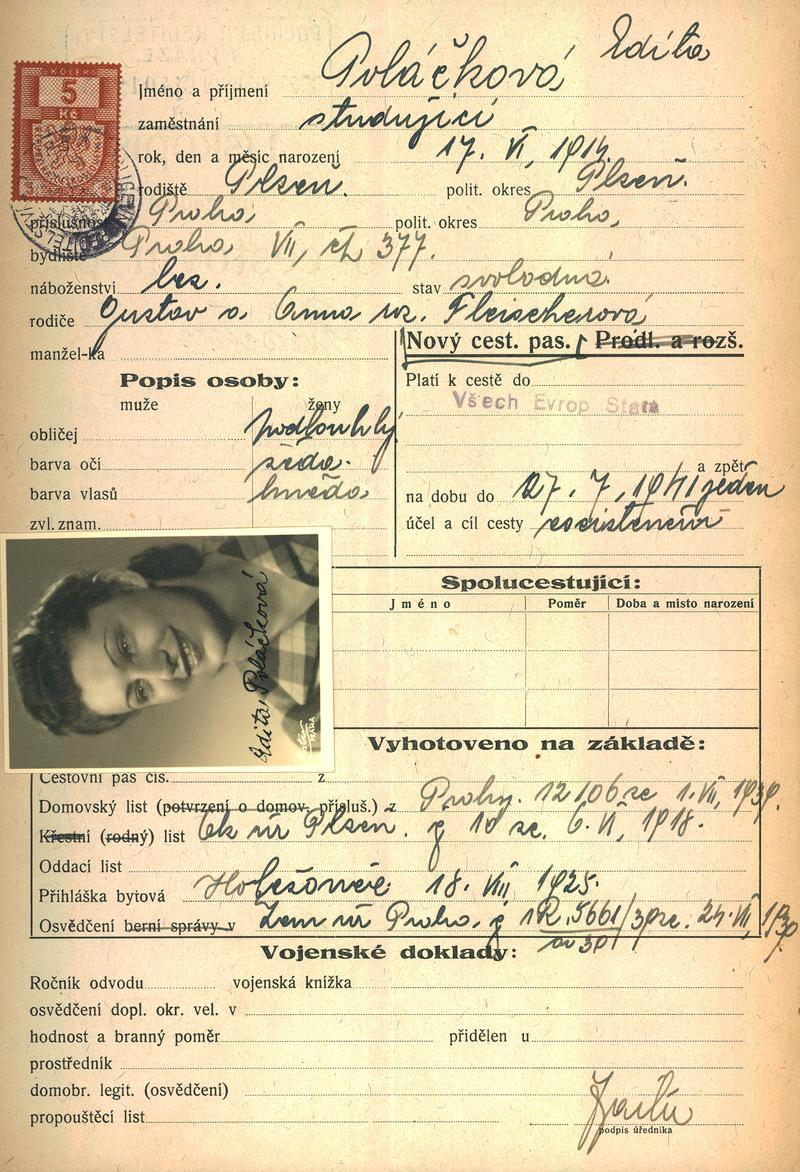 KOLEK
5
Kč
Jméno a příjmení Poláčková Edita
zaměstnání studující
rok, den a měsíc narození 17. VI, 1914.
rodiště Plzeň. polit. okres Plzeň.
příslušnost Praha, polit. okres Praha,
bydliště Praha, VII, čp 377.
náboženství bez. stav svobodná.
rodiče Gustav a Anna roz. Fleischerová
manžel-ka
Nový cest. pas. Prodl. a rozš.
Popis osoby:
muže ženy
obličej podlouhlý
barva očí šedá.
barva vlasů hnědá
zvl. znam.
Platí k cestě do
Všech Evrop Států
a zpět
na dobu do 27. 7, 1941 jeden
účel a cíl cesty
Edita Poláčková
PRAHA
Spolucestující:
Jméno Poměr Doba a místo narození
Vyhotoveno na základě:
Cestovní pas čís. z
Domovský list (potvrzení o domov. přísluš.) z Prahy. 12106 ze 1. VII, 1939.
Křestní (rodný) list Plzeň. č 10 ze. 6. VI, 1918.
Oddací list
Přihláška bytová Holešovice 18. VIII 1925.
Osvědčení berní správy v Praha. č 1R.5661/39 ze. 24. VII, 1939
Vojenské doklady:
Ročník odvodu vojenská knížka
osvědčení dopl. okr. vel. v
hodnost a branný poměr přidělen u
prostředník
domobr. legit. (osvědčení)
propouštěcí list
podpis úředníka